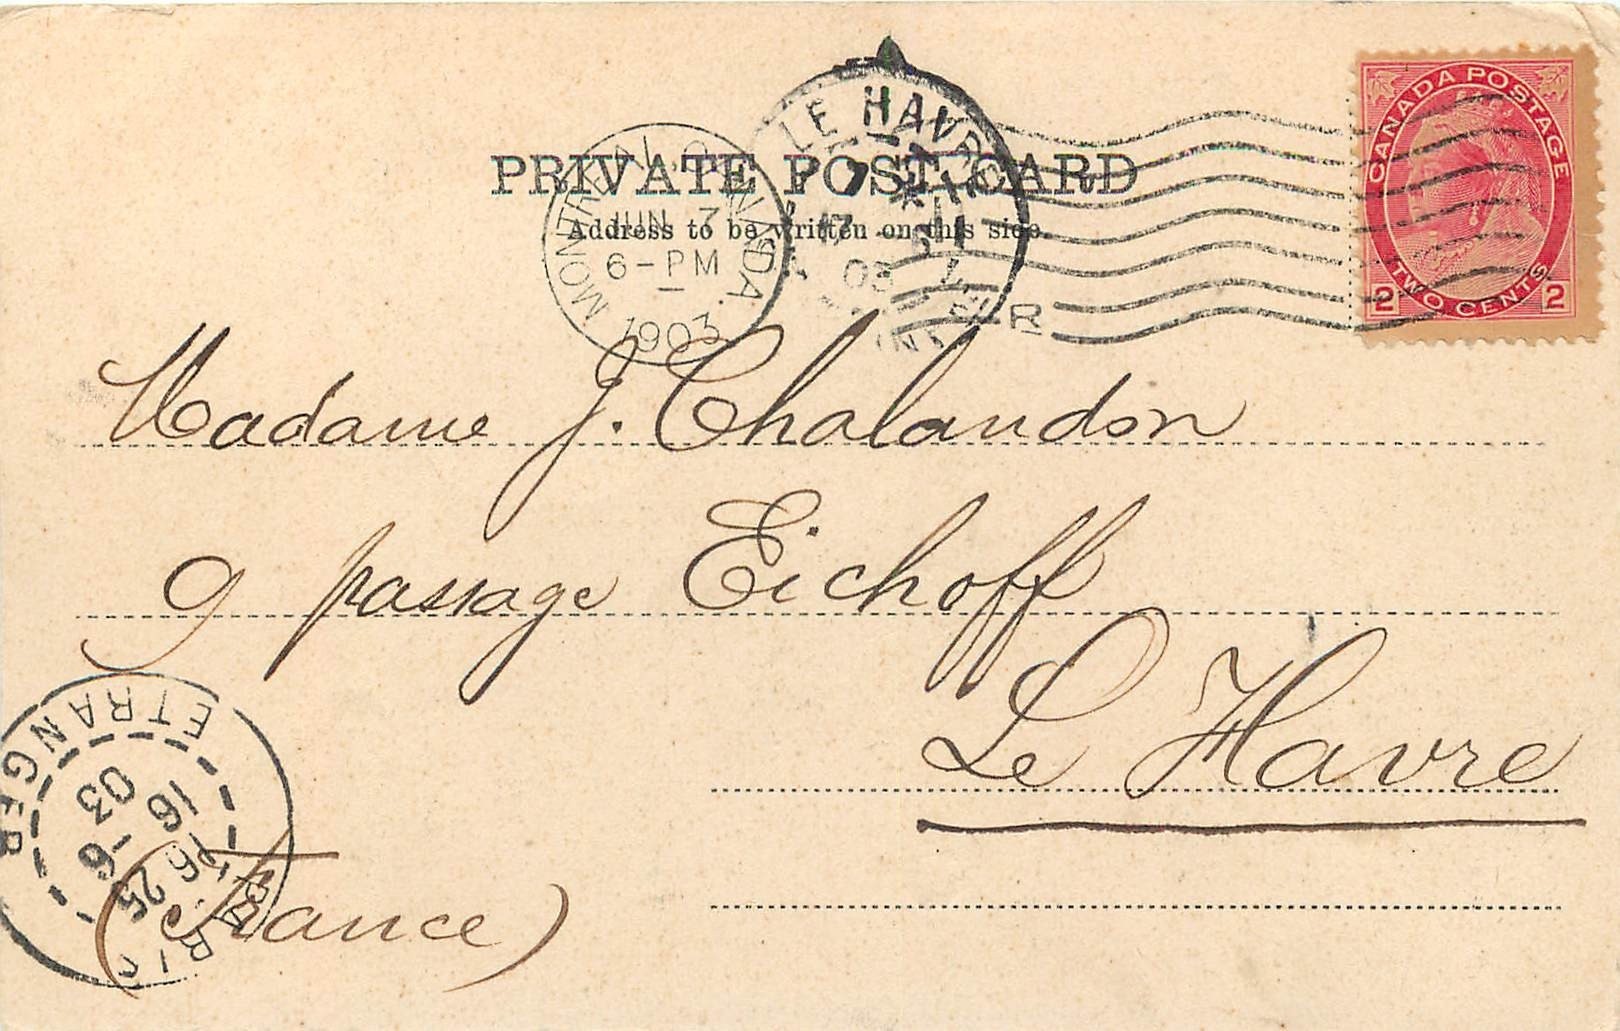 PRIVATE POST CARD
Address to be written on this side
MONTREAL, CANADA.
JUN 7
6-PM
1903
LE HAVRE
03
CANADA POSTAGE
2 TWO CENTS 2
Madame J. Chalandon
9 passage Eichoff
Le Havre
(France)
ETRANGER
16 -6
03
PARIS